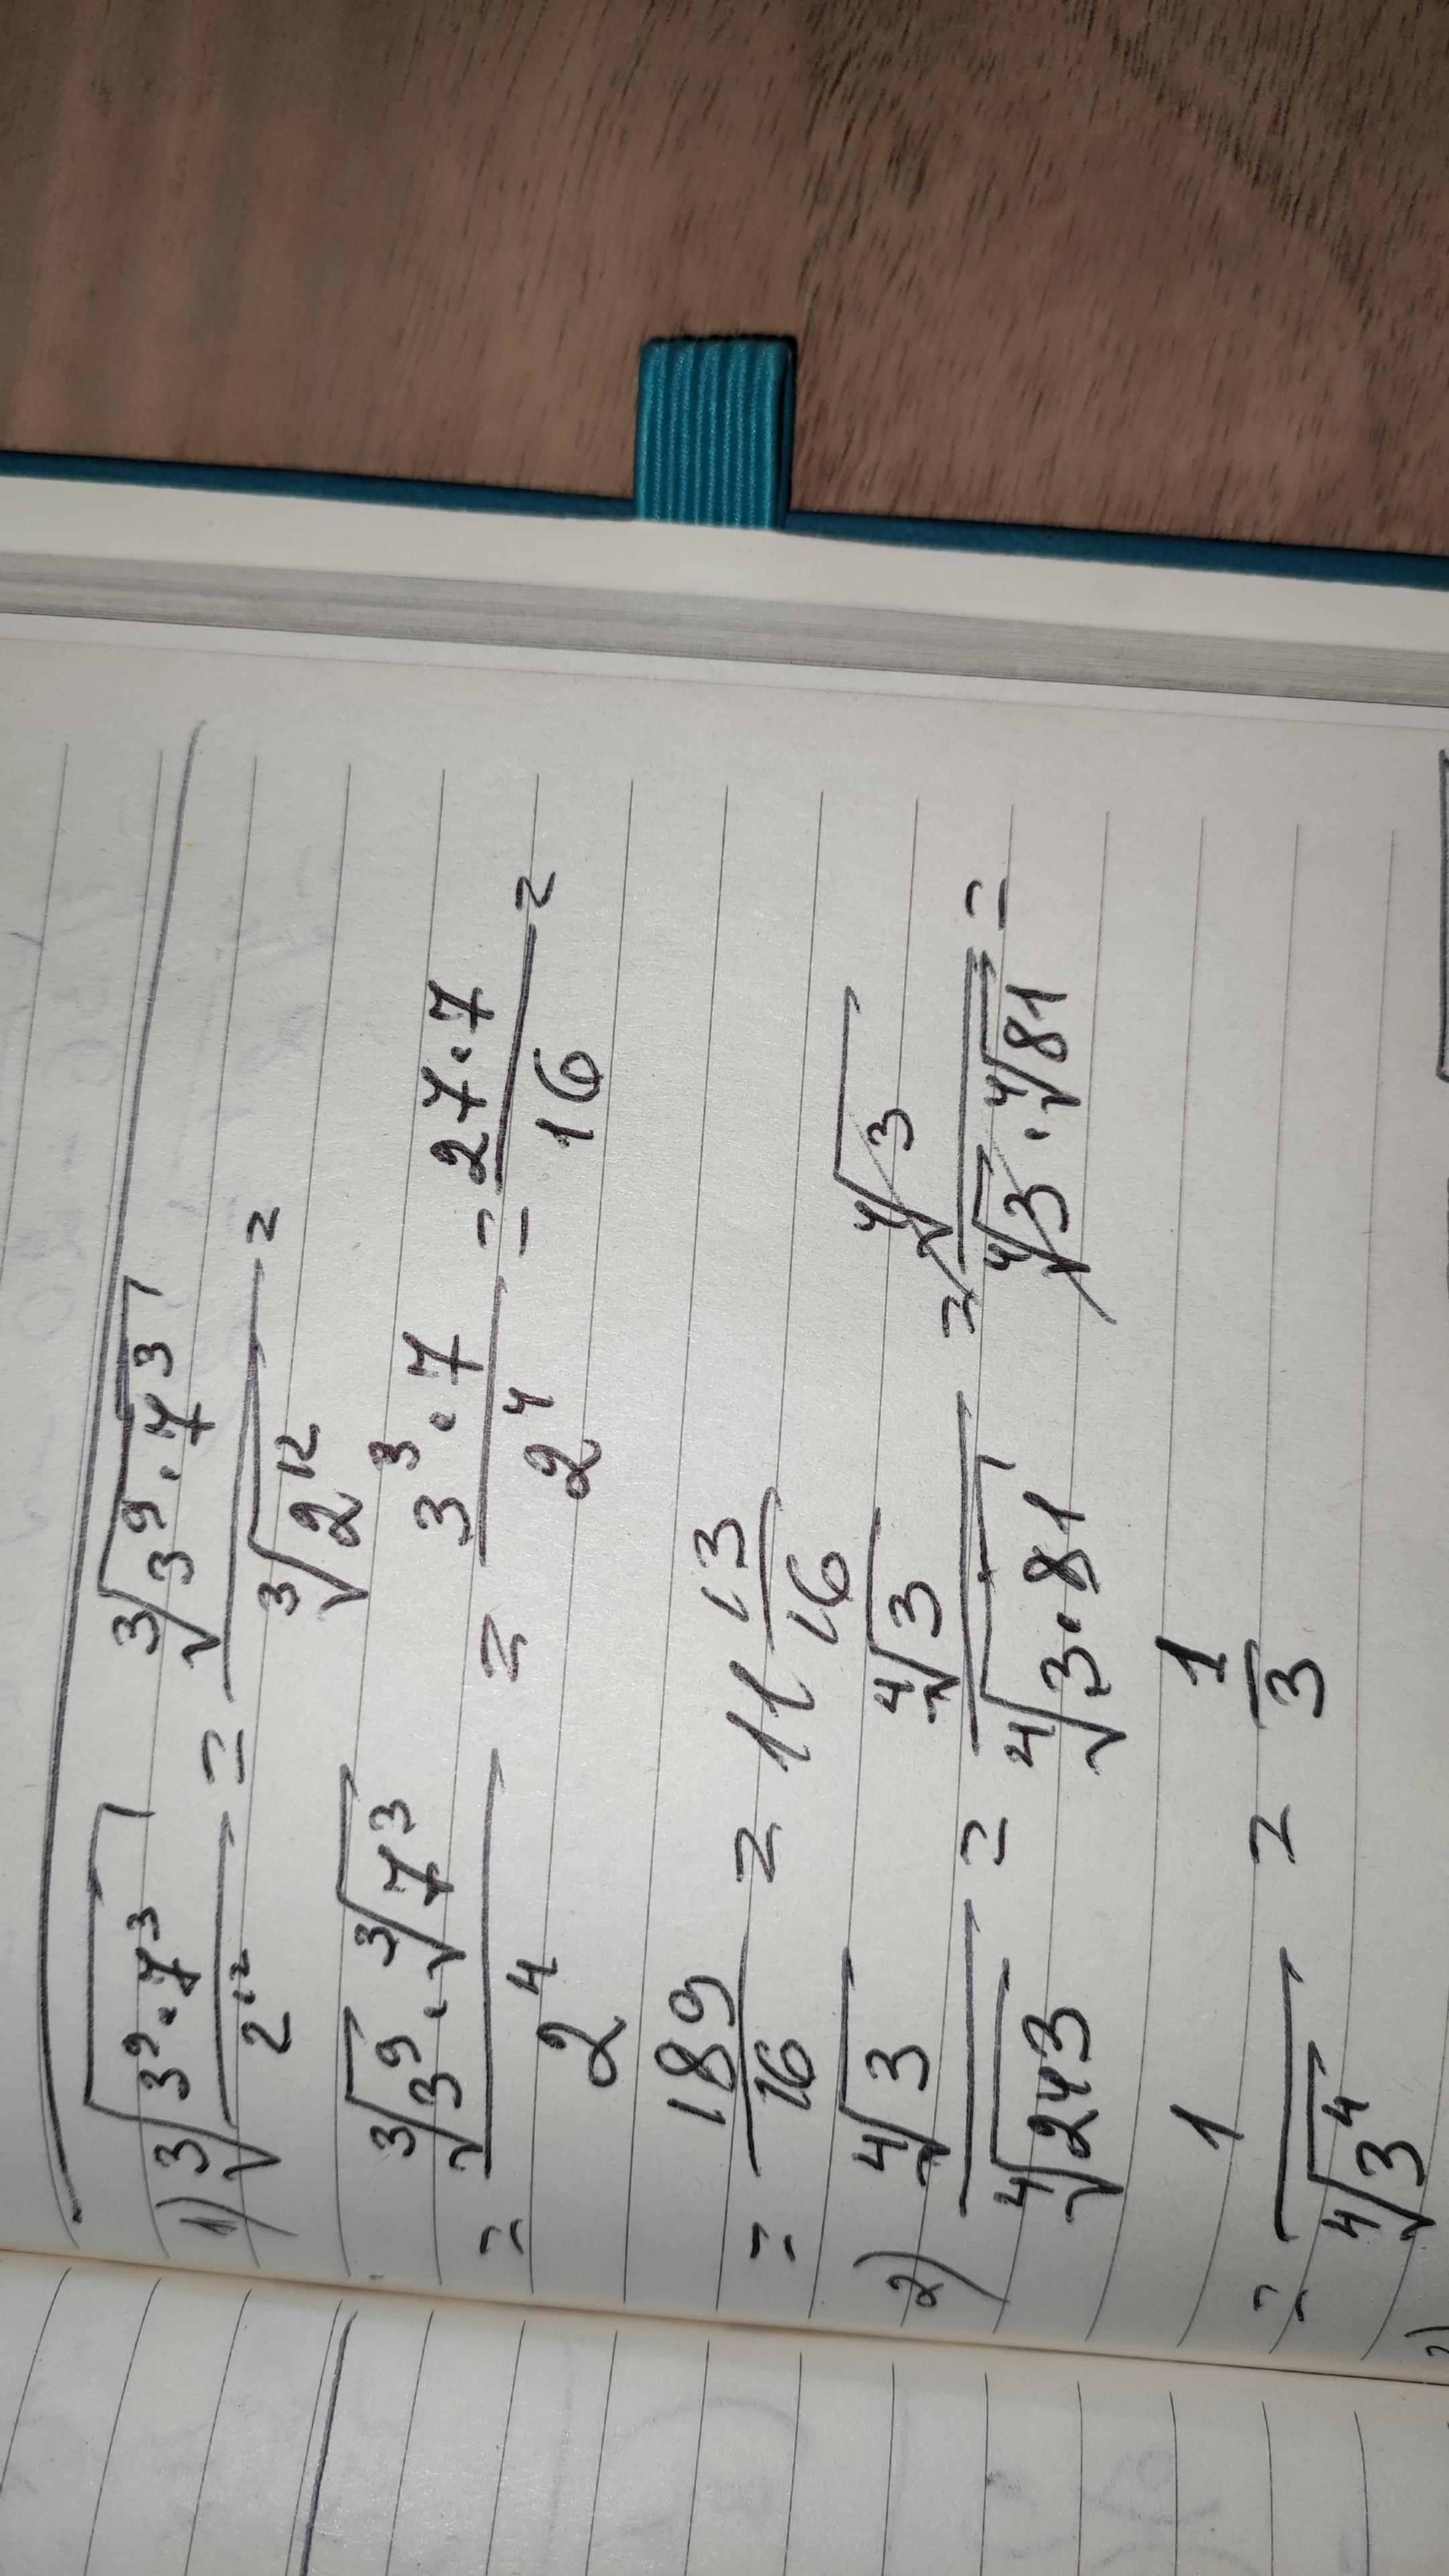 1) ∛(3⁹·7³/2¹²) = ∛(3⁹·7³)/∛(2¹²) =
= (∛(3⁹)·∛(7³))/2⁴ = (3³·7)/2⁴ = (27·7)/16 =
= 189/16 = 11 13/16
2) ∜3/∜243 = ∜3/∜(3·81) = ∜3/(∜3·∜81) =
= 1/∜(3⁴) = 1/3